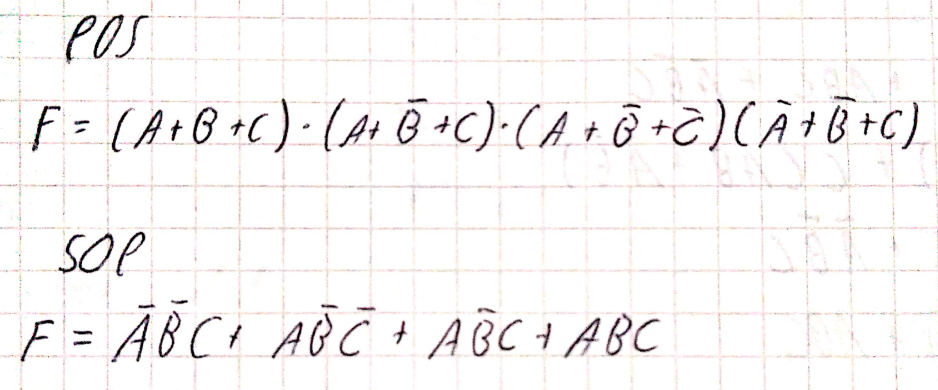 POS
F = (A+B+C)·(A+B̄+C)·(A+B̄+C̄)(Ā+B̄+C)
SOP
F = ĀB̄C + AB̄C̄ + AB̄C + ABC